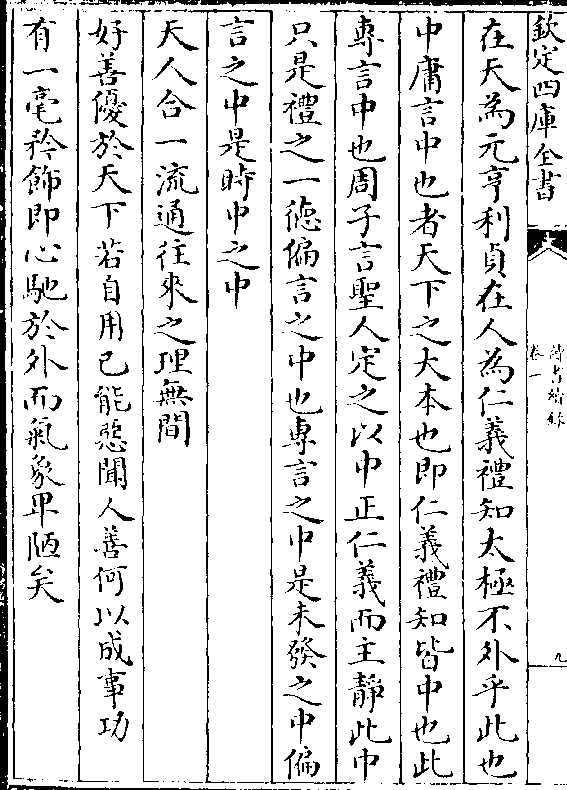 欽定四庫全書
讀書續錄
卷一
九
在天為元亨利貞在人為仁義禮知太極不外乎此也
中庸言中也者天下之大本也即仁義禮知皆中也此
專言中也周子言聖人定之以中正仁義而主靜此中
只是禮之一德偏言之中也專言之中是未發之中偏
言之中是時中之中
天人合一流通往來之理無間
好善優於天下若自用己能惡聞人善何以成事功
有一毫矜飾即心馳於外而氣象卑陋矣